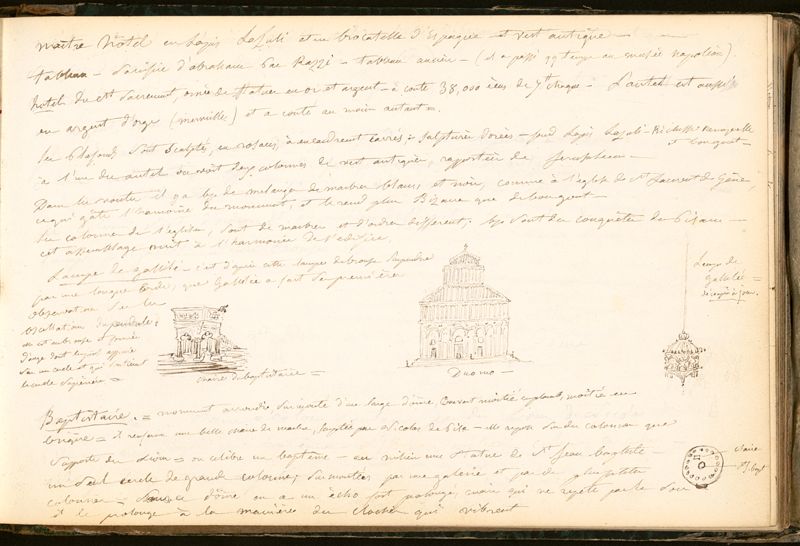 maître hôtel en Lapis Lazuli et en brocatelle d'Espagne et vert antique —
tableau — Sacrifice d'abraham par Razzi — tableau ancien — (il a passé qq temps au musée napoléon).
hotel du St Sacrement, ornée de statues en or et argent — a couté 38,000 écus de 7tt chaque — L'autel est aussi
en argent d'orge (merveilles) et a couté au moins autant =
les plafonds sont sculptés, en rosaces, à encadrement carrés = sculptures dorées — fond Lapis Lazuli —
et
à l'un du autel on voit deux colonnes de vert antique, rapportées de Jerusalem —
Dans la voute il y a bcp de mélange de marbres blancs et noirs, comme à l'église de St Laurent de Gène,
ce qui gâte l'harmonie du monument, et le rend plus Bizarre que de bon gout —
les colonnes de l'église, sont de marbres et d'ordres différents; bcp sont des conquêtes des Pisans —
cet assemblage nuit à l'harmonie de l'édifice.
Lampe de galilée — c'est d'après cette lampe de bronze suspendue
par une longue corde, que Galilée a fait ses premières
observations sur les
oscillations du pendule;
Lampe de
Galilée =
chaire du baptistaire =
Duomo —
Baptistaire. = monument arrondi surmonté d'un large dôme, couvert moitié en plomb, moitié en
briques = il renferme une belle chaire de marbre, sculptée par Nicolas de Pise — elle repose sur des colonnes que
supporte des Lions = on celèbre un baptême — au milieu une statue de St Jean Baptiste —
un seul cercle de grandes colonnes, surmontées par une galerie et par de plus petites
colonnes — Sous ce dôme on a un écho fort prolongé, mais qui ne repète pas le son
et le prolonge à la manière des cloches qui vibrent